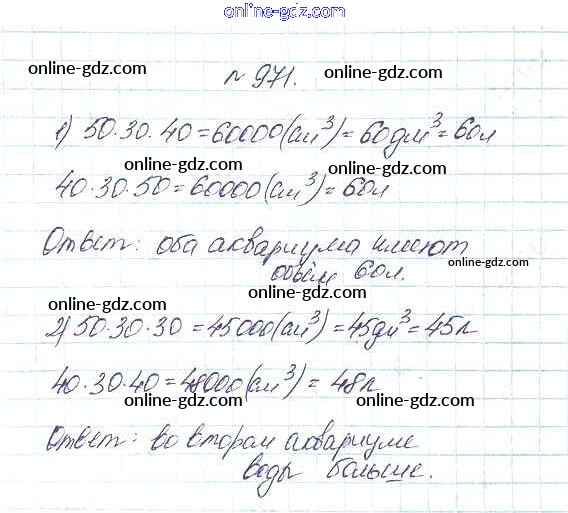 online-gdz.com
online-gdz.com
№ 971.
online-gdz.com
1) 50·30·40=60000(см³)=60дм³=60л
online-gdz.com
online-gdz.com
40·30·50=60000(см³)=60л
online-gdz.com
Ответ: оба аквариума имеют
объём 60л.
online-gdz.com
online-gdz.com
2) 50·30·30=45000(см³)=45дм³=45л
online-gdz.com
online-gdz.com
40·30·40=48000(см³)=48л
online-gdz.com
online-gdz.com
Ответ: во втором аквариуме
воды больше.
online-gdz.com